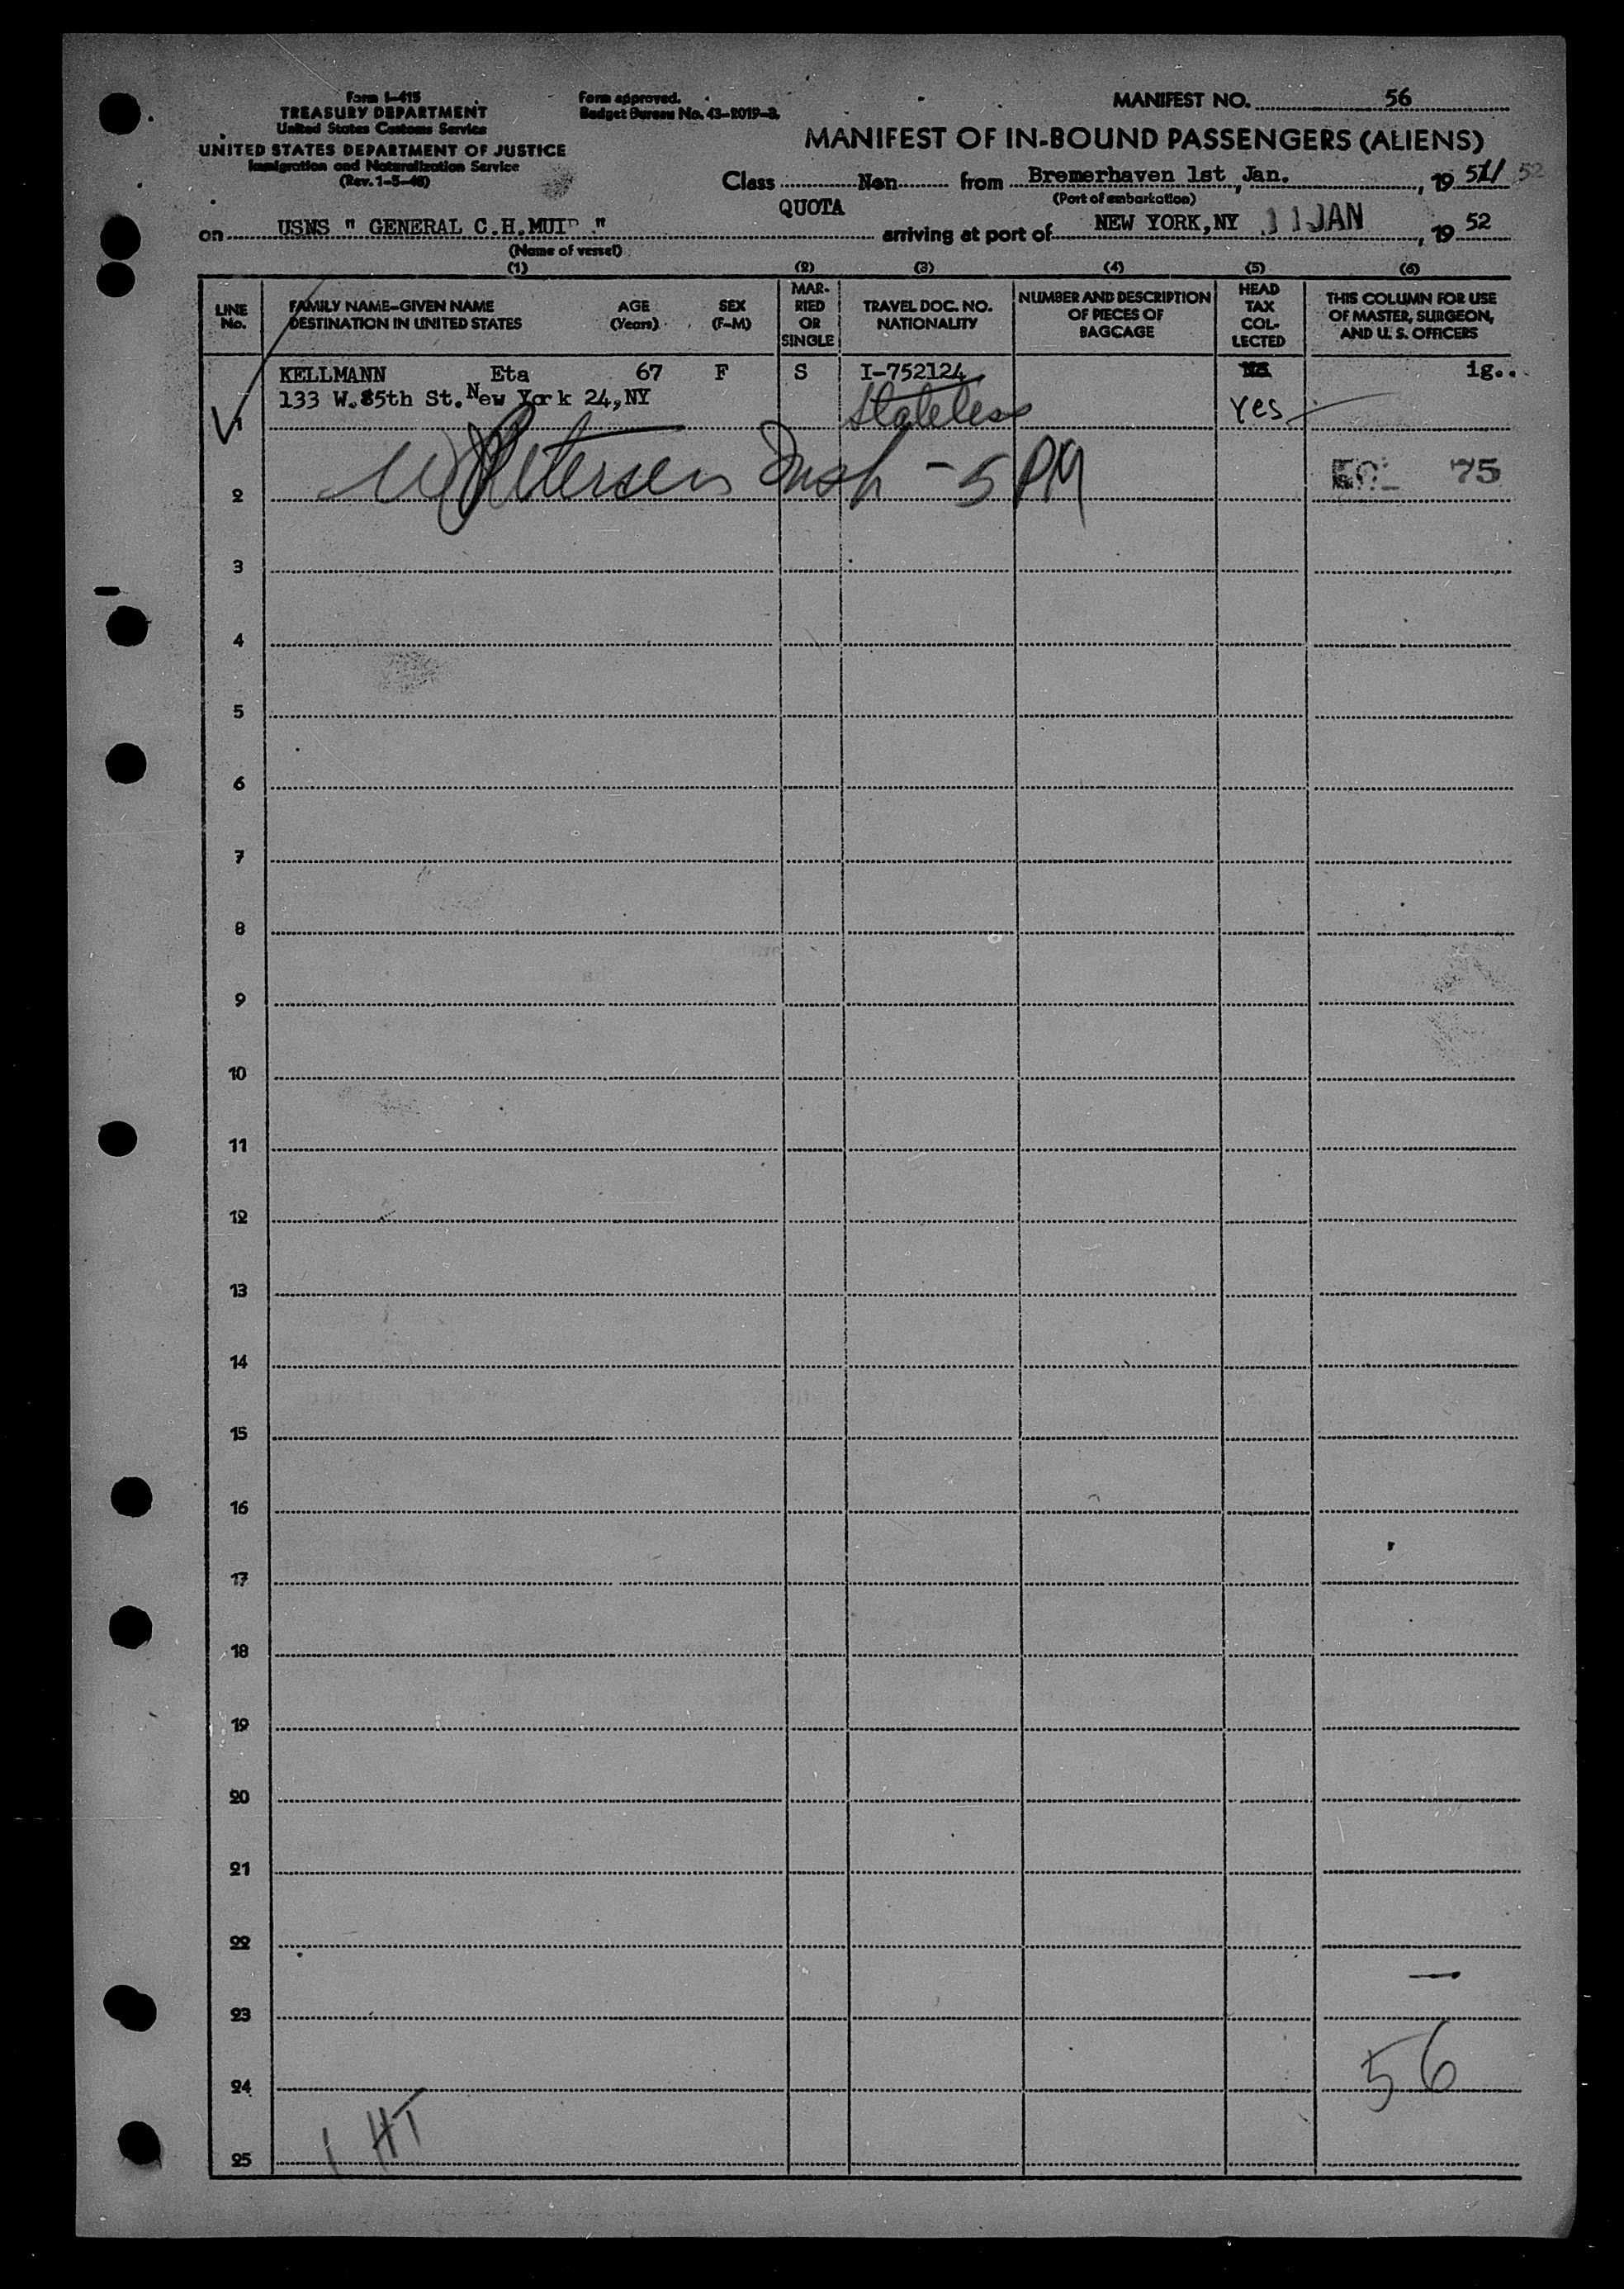 Form I-415
TREASURY DEPARTMENT
United States Customs Service
UNITED STATES DEPARTMENT OF JUSTICE
Immigration and Naturalization Service
(Rev. 1-5-48)
Form approved.
Budget Bureau No. 43-R019-3.
MANIFEST NO. 56
MANIFEST OF IN-BOUND PASSENGERS (ALIENS)
Class Non from Bremerhaven 1st, Jan., 1951 52
QUOTA (Port of embarkation)
on USNS " GENERAL C.H.MUIR " arriving at port of NEW YORK,NY 11 JAN, 1952
(Name of vessel)
(1) (2) (3) (4) (5) (6)
LINE No. FAMILY NAME-GIVEN NAME DESTINATION IN UNITED STATES AGE (Years) SEX (F-M) MARRIED OR SINGLE TRAVEL DOC. NO. NATIONALITY NUMBER AND DESCRIPTION OF PIECES OF BAGGAGE HEAD TAX COLLECTED THIS COLUMN FOR USE OF MASTER, SURGEON, AND U. S. OFFICERS
KELLMANN Eta 67 F S I-752124 No ig..
133 W.85th St. New York 24,NY Stateless Yes
1
Petersen Insp - 5 PM 75
2
3
4
5
6
7
8
9
10
11
12
13
14
15
16
17
18
19
20
21
22
23
24 56
1 HT
25